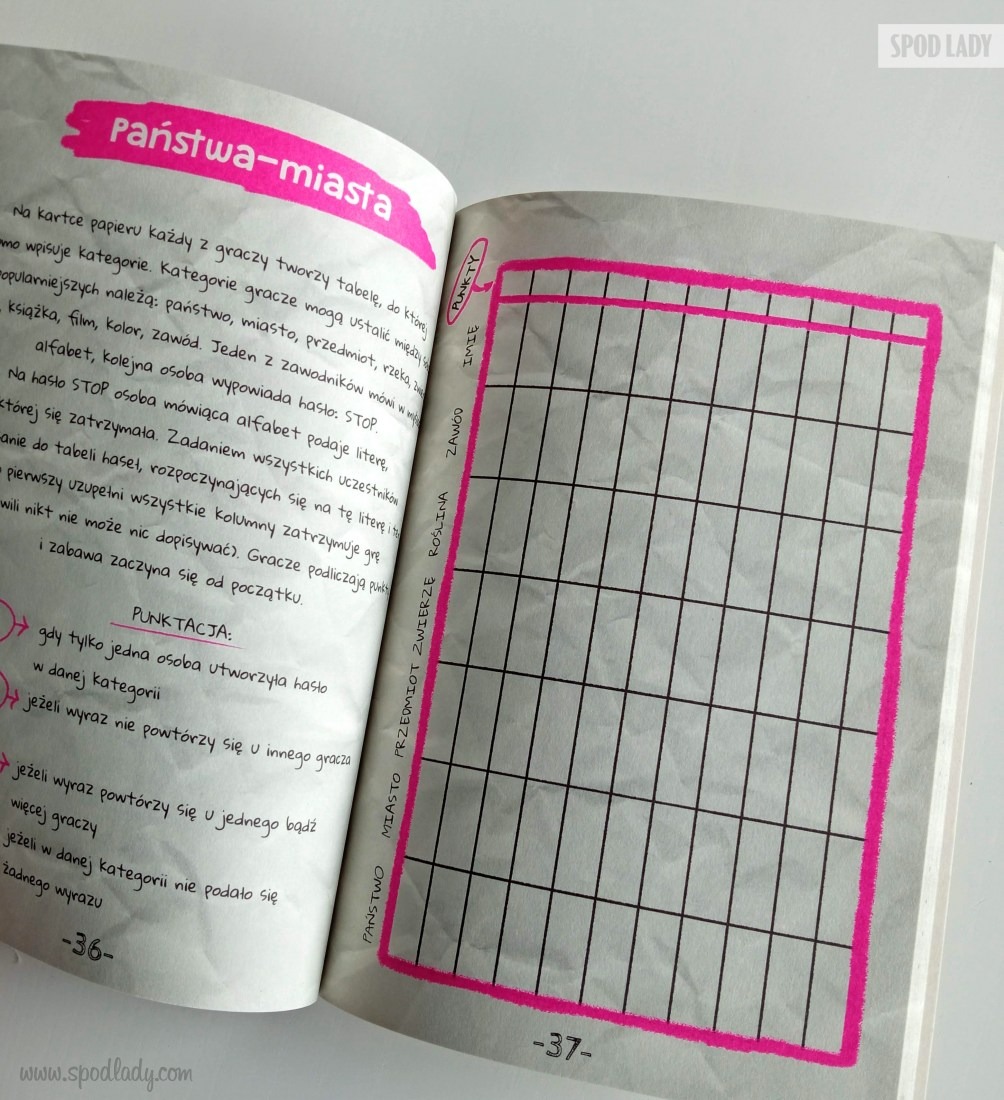 SPOD LADY
Państwa-miasta
Na kartce papieru każdy z graczy tworzy tabelę, do której
wpisuje kategorie. Kategorie gracze mogą ustalić między
należą: państwo, miasto, przedmiot, rzeka,
książka, film, kolor, zawód. Jeden z zawodników mówi w
alfabet, kolejna osoba wypowiada hasło: STOP.
Na hasło STOP osoba mówiąca alfabet podaje literę,
której się zatrzymała. Zadaniem wszystkich uczestników
do tabeli haseł, rozpoczynających się na tę literę i
pierwszy uzupełni wszystkie kolumny zatrzymuje grę
nikt nie może nic dopisywać). Gracze podliczają
i zabawa zaczyna się od początku.
PUNKTACJA:
gdy tylko jedna osoba utworzyła hasło
w danej kategorii
jeżeli wyraz nie powtórzy się u innego gracza
jeżeli wyraz powtórzy się u jednego bądź
więcej graczy
jeżeli w danej kategorii nie podało się
żadnego wyrazu
-36-
PUNKTY
IMIĘ
ZAWÓD
ROŚLINA
ZWIERZĘ
PRZEDMIOT
MIASTO
PAŃSTWO
-37-
www.spodlady.com